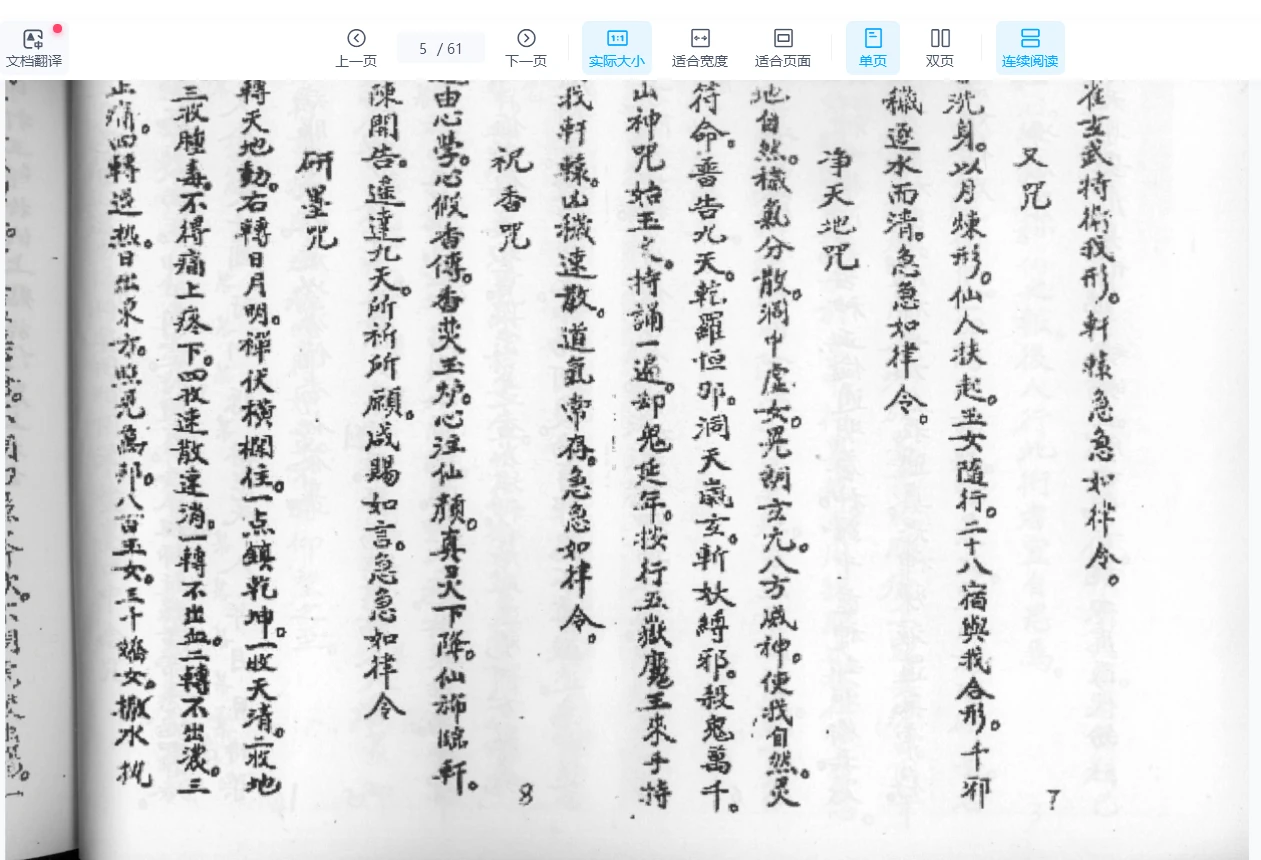 文档翻译
上一页
5 / 61
下一页
1:1
实际大小
适合宽度
适合页面
单页
双页
连续阅读
雀玄武侍衛我形。軒轅急急如律令。
又咒
洗身。以月煉形。仙人扶起。玉女隨行。二十八宿與我合形。千邪
7
穢逐水而清。急急如律令。
净天地咒
地自然。穢氣分散。洞中虛女。晃朗玄元。八方威神。使我自然。灵
符命。普告九天。乾羅恒那。洞天罡玄。斬妖縛邪。殺鬼萬千。
山神咒始玉文。持誦一遍。却鬼延年。按行五嶽魔王來手持
我軒轅。凶穢速散。道氣常存。急急如律令。
祝香咒
8
由心學。心假香傳。香焚玉炉。心注仙顏。真灵下降。仙旆臨軒。
陳開告。遥達九天。所祈所願。咸賜如言。急急如律令
研墨咒
轉天地動。右轉日月明。禪伏橫欄住。一点鎮乾坤。一收天清。二收地
三收腫毒。不得痛上疼下。四收速散速消。一轉不出血。二轉不出濃。三
止痛。四轉退热。日出東方。照見萬邦。八百玉女。三千嬌女。撒水执